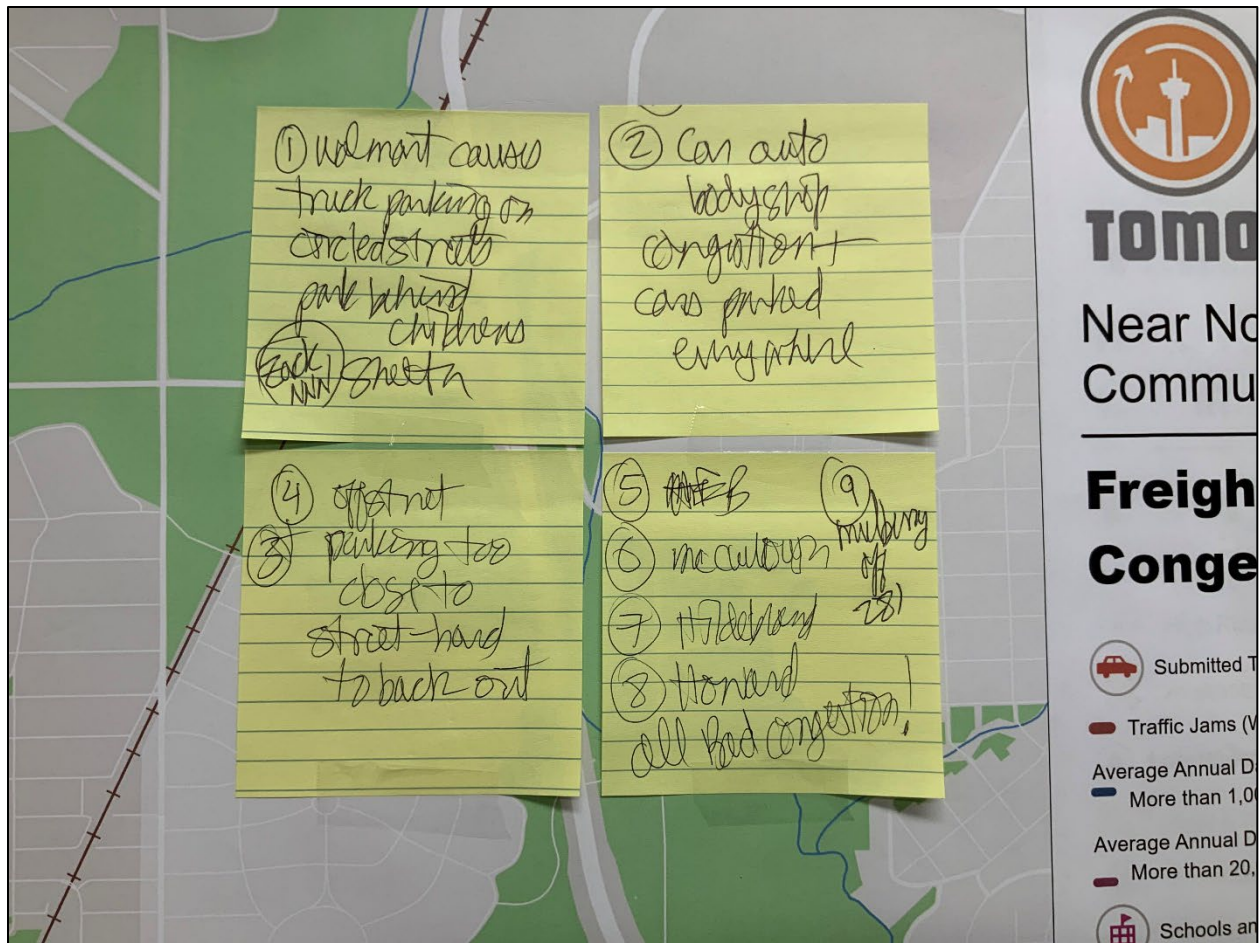 ① Walmart causes
truck parking on
circled streets
park behind
childrens
Zack
NNN
Shelter
② Car auto
body shop
congestion +
cars parked
everywhere
④ offstreet
③ parking too
close to
street-hard
to back out
⑤ HEB
⑥ mcculough
⑦ Hildebrand
⑧ Howard
all Bad congestion!
⑨
mulberry
off
281
TOMO
Near No
Commu
Freigh
Conge
Submitted T
Traffic Jams (W
Average Annual Da
More than 1,00
Average Annual D
More than 20,
Schools an